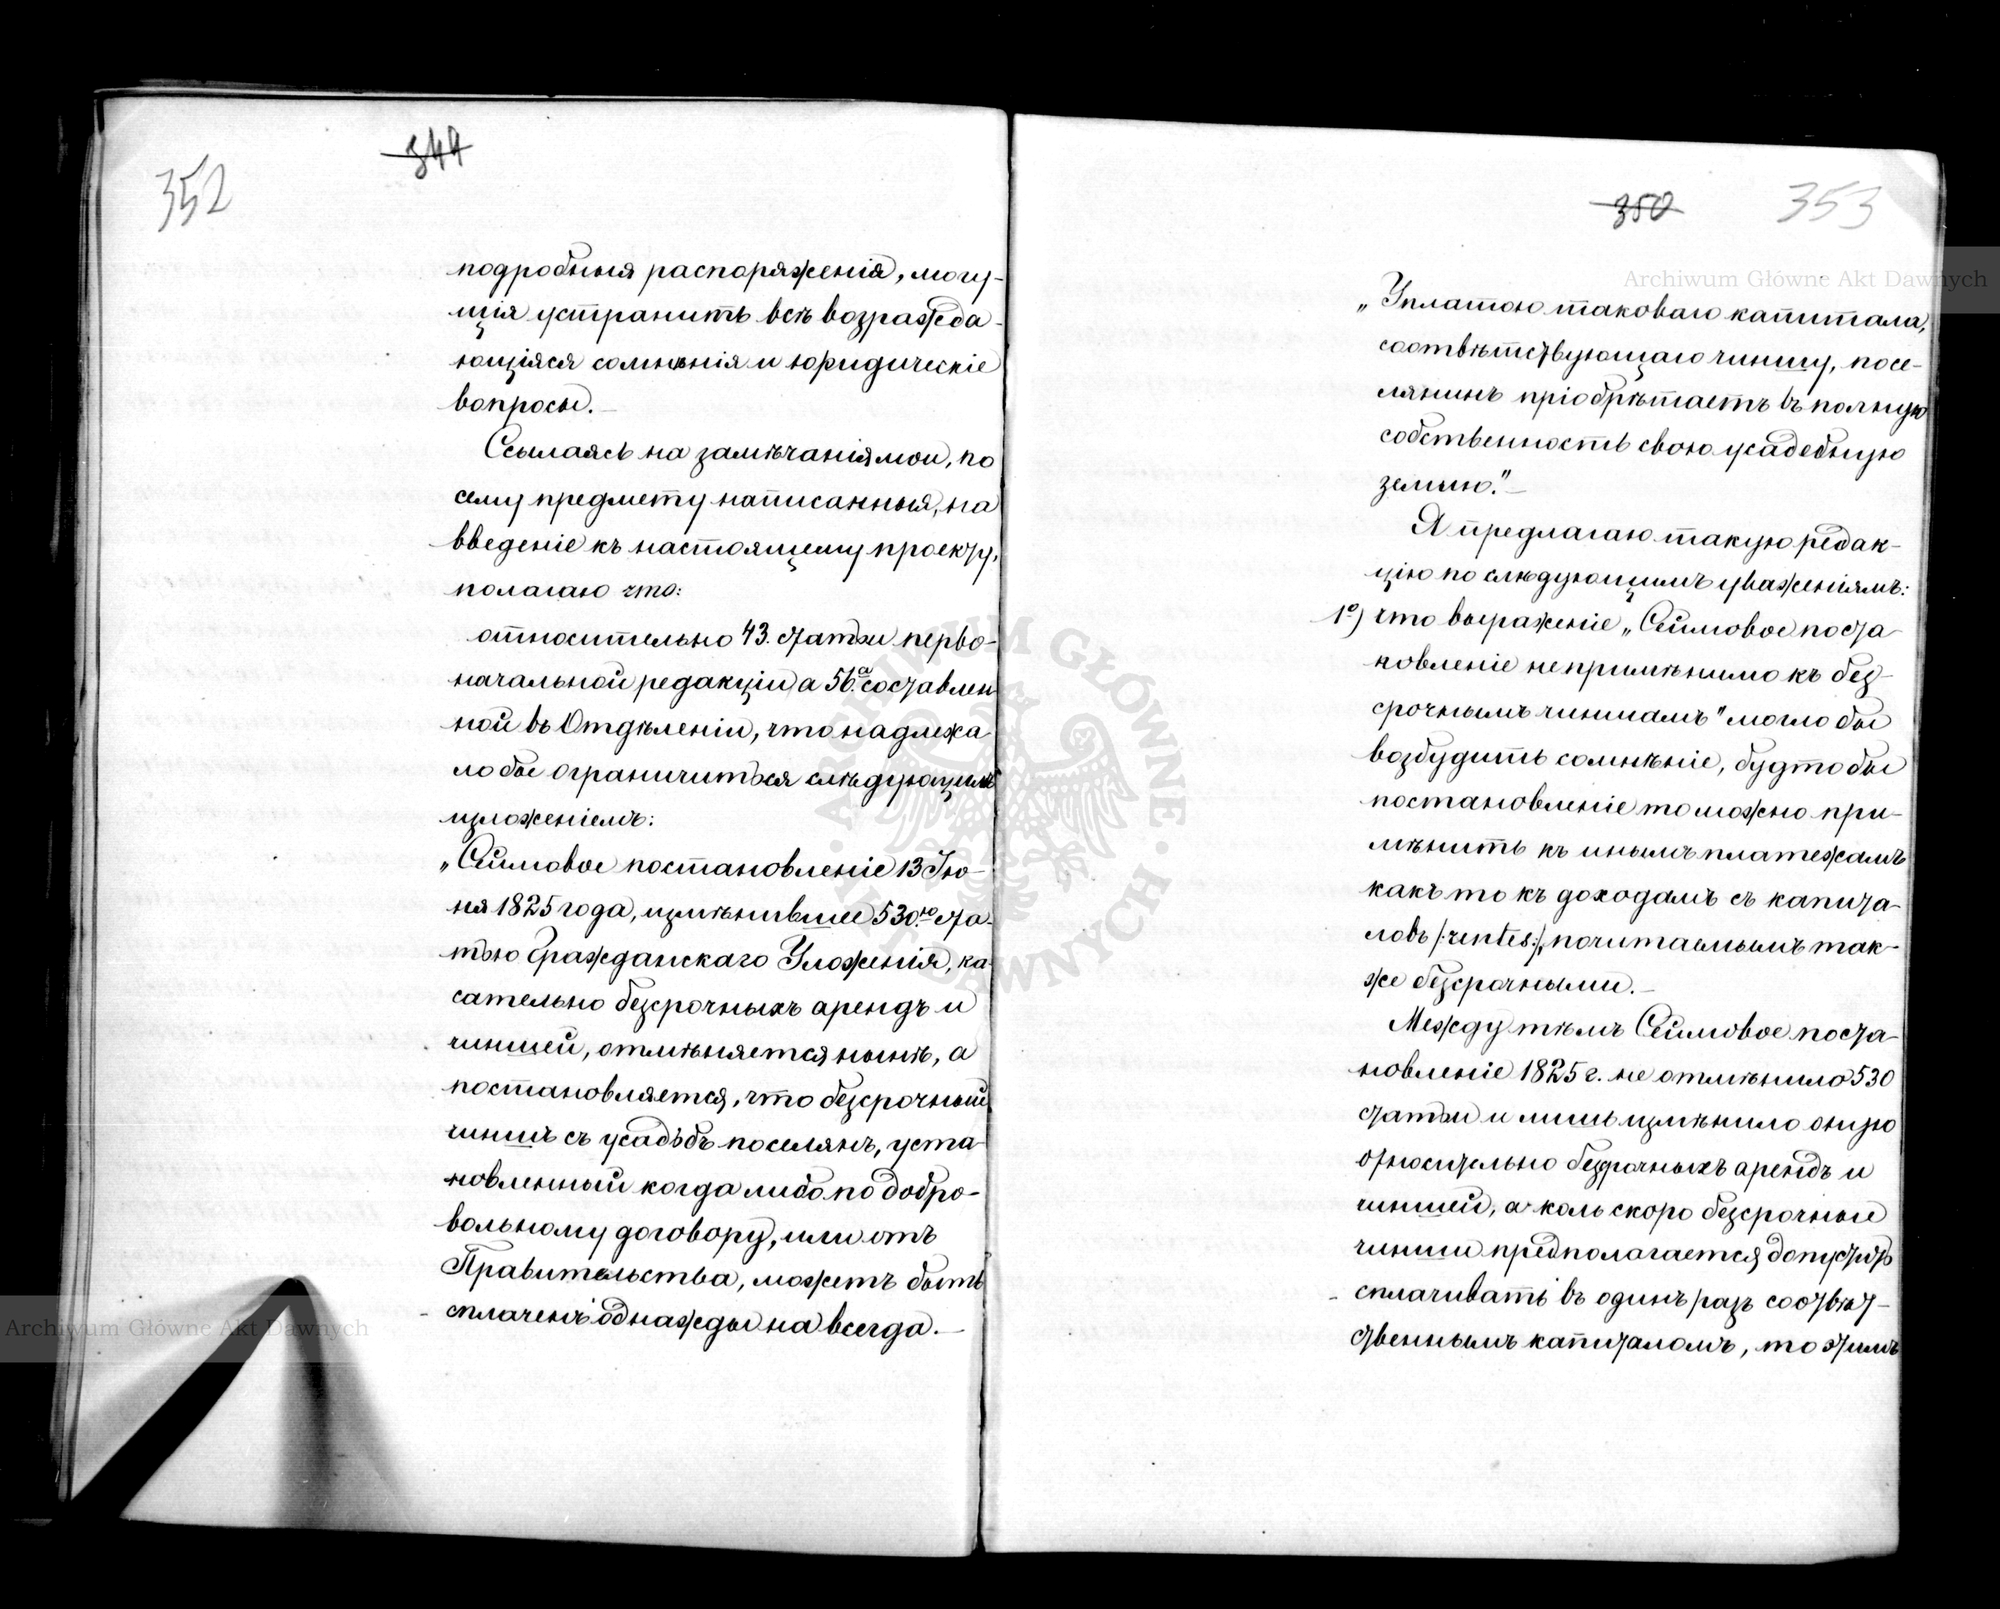 352
344
подробныя распоряженія, могу-
щія устранить всѣ возражда-
ющіяся сомнѣнія и юридическіе
вопросы.
Ссылаясь на замѣчанія мои, по
сему предмету написанныя, на
введеніе къ настоящему проекту,
полагаю что:
относительно 43. статьи перво-
начальной редакціи, а 56.а составлен
ной въ Отдѣленіи, что надлежа
ло бы ограничиться слѣдующимъ
изложеніемъ:
„Сеймовое постановленіе 13 Ію-
ня 1825 года, измѣнившее 530.ю ста-
тью Гражданскаго Уложенія, ка
сательно безсрочныхъ арендъ и
чиншей, отмѣняется нынѣ, а
постановляется, что безсрочный
чиншъ съ усадьбъ поселянъ, уста
новленный когда либо по добро-
вольному договору, или отъ
Правительства, можетъ быть
сплаченъ однажды на всегда.—
350
353
„Уплатою таковаго капитала,
соотвѣтствующаго чиншу, посе-
лянинъ пріобрѣтаетъ въ полную
собственность свою усадебную
землю."—
Я предлагаю такую редак-
цію по слѣдующимъ уваженіямъ:
1º) что выраженіе „Сеймовое поста
новленіе непримѣнимо къ без-
срочнымъ чиншамъ" могло бы
возбудить сомнѣніе, будто бы
постановленіе то можно при-
мѣнить къ инымъ платежамъ
какъ то къ доходамъ съ капита-
ловъ /:rentes:/, почитаемымъ так-
же безсрочными.—
Между тѣмъ Сеймовое поста-
новленіе 1825 г. не отмѣнило 530
статьи и лишь измѣнило оную
относительно безсрочныхъ арендъ и
чиншей, а коль скоро безсрочные
чинши предполагается допустить
сплачивать въ одинъ разъ соотвѣт-
ственнымъ капиталомъ, то этимъ
Archiwum Główne Akt Dawnych
Archiwum Główne Akt Dawnych
ARCHIWUM GŁÓWNE AKT DAWNYCH